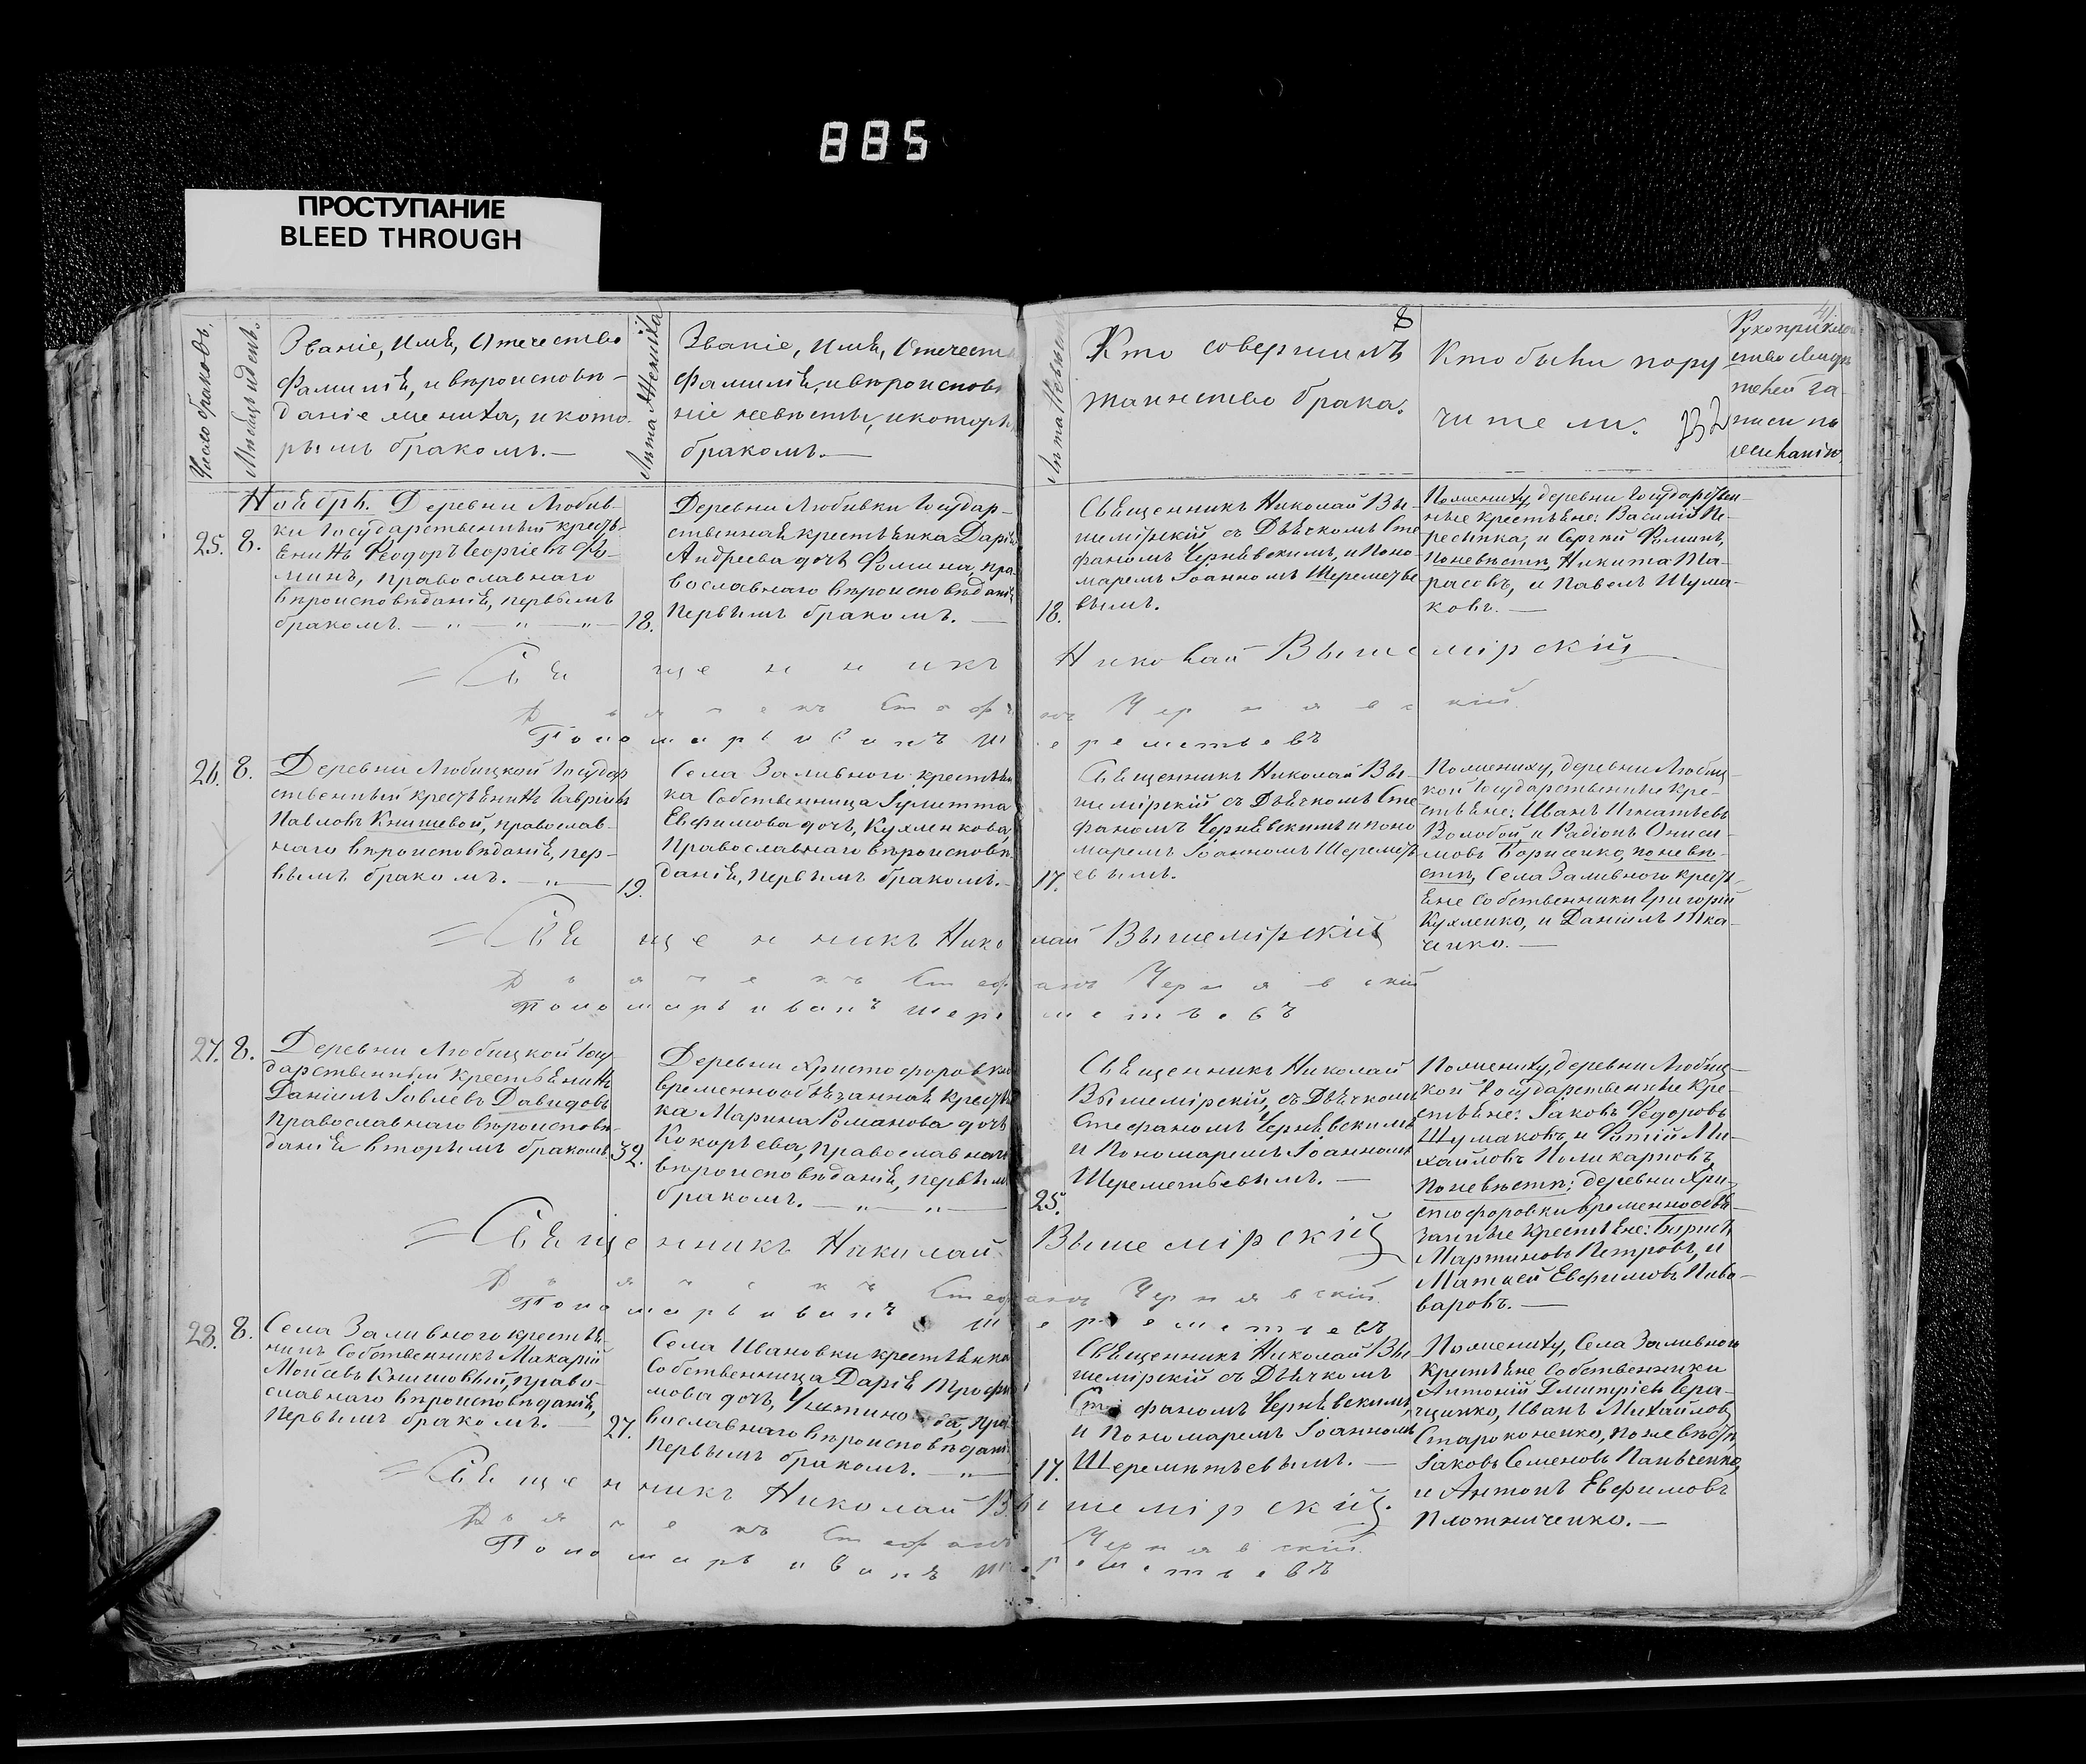 885
ПРОСТУПАНИЕ
BLEED THROUGH
8
41
Число браковъ.
Мѣсяцъ и день.
Званіе, имя, Отечество
Фамилія, и вѣроисповѣ-
даніе жениха, и кото-
рымъ бракомъ.—
Лѣта Жениха
Званіе, имя, Отечест
Фамилія, и вѣроисповѣ
ніе невѣсты, и которы
бракомъ.—
Лѣта Невѣсты
Кто совершилъ
таинство брака.
Кто были пору
чители.
Рукоприклад
ство свидѣ
телей за
писи по
желанію.
Ноябрь.
25. 8.
Деревни Любив-
ки Государственный кресть-
янинъ Ѳеодоръ Георгіевъ Фо-
минъ, православнаго
вѣроисповѣданія, первымъ
бракомъ. — „ — „ — „ —
18.
Деревни Любивки Государ-
ственная крестьянка Дарія
Андреева дочь Фомина, пра-
вославнаго вѣроисповѣданія
первымъ бракомъ. —
18.
Священникъ Николай Вы-
шемірскій съ Дьячкомъ Сте
фаномъ Чернявскимъ, и Поно-
маремъ Іоанномъ Шереметье
вымъ.
По жениху, деревни Государствен-
ные крестьяне: Василій Пе-
и Сергій Фоминъ,
По невѣстѣ, Никита Та-
расовъ, и Павелъ Шума-
ковъ. —
Священникъ Николай Вышемірскій
Дьячекъ Стефанъ Чернявскій
Пономарь Иванъ Шереметьевъ
26. 8.
Деревни Любицкой Государ
ственный крестьянинъ Гавріилъ
Павловъ Книшевой, православ-
наго вѣроисповѣданія, пер-
вымъ бракомъ. — „ —
19.
Села Заливного крестьян
ка Собственница Іулитта
Евфимова дочь, Кухленкова
Православнаго вѣроисповѣ
данія, первымъ бракомъ. —
17.
Священникъ Николай Вы-
шемірскій съ Дьячкомъ Сте
фаномъ Чернявскимъ и поно
маремъ Іоанномъ Шереметь
евымъ.
По жениху, деревни Любиц-
кой Государственные кре-
стьяне: Иванъ Игнатьевъ
Волобой и Радіонъ Ониси-
мовъ Борисенко, по невѣ-
стѣ, Села Заливного кресть-
яне собственники Григорій
Кухленко, и Даніилъ Тка-
ченко. —
Священникъ Николай Вышемірскій
Дьячекъ Стефанъ Чернявскій
Пономарь Иванъ Шереметьевъ
27. 8.
Деревни Любицкой Госу-
дарственный крестьянинъ
Даніилъ Іовлевъ Давидовъ
Православнаго вѣроисповѣ-
данія вторымъ бракомъ.
32.
Деревни Христофоровки
временнообязанная крестьян
ка Марина Романова дочь
Кокорьева, православнаго
вѣроисповѣданія, первымъ
бракомъ. — „ — „ —
25.
Священникъ Николай
Вышемірскій, съ Дьячкомъ
Стефаномъ Чернявскимъ
и Пономаремъ Іоанномъ
Шереметьевымъ. —
По жениху, деревни Любиц-
кой Государственные кре-
стьяне: Іаковъ Ѳедоровъ
Шумаковъ, и Фотій Ми-
хайловъ Поликарповъ,
По невѣстѣ; деревни Хри-
стофоровки временнообя-
занные крестьяне: Борисъ
Мартиновъ Петровъ, и
Матвей Евфимовъ Пиво-
варовъ. —
Священникъ Николай Вышемірскій
Дьячекъ Стефанъ Чернявскій
Пономарь Иванъ Шереметьевъ
28. 8.
Села Заливного крестья-
нинъ Собственникъ Макарій
Моисеевъ Книшовый, право-
славнаго вѣроисповѣданія,
первымъ бракомъ.
27.
Села Ивановки крестьянка
Собственница Дарія Трофи
мова дочь, Устинова, пра
вославнаго вѣроисповѣдані
первымъ бракомъ. — „ —
17.
Священникъ Николай Вы-
шемірскій съ Дьячкомъ
Стефаномъ Чернявскимъ,
и Пономаремъ Іоанномъ
Шереметьевымъ. —
По жениху, Села Заливного
крестьяне Собственники
Антоній Дмитріевъ Гера-
щенко, Иванъ Михайловъ
Староконенко, по невѣстѣ,
Іаковъ Семеновъ Панченко,
и Антонъ Евфимовъ
Плотниченко. —
Священникъ Николай Вышемірскій.
Дьячекъ Стефанъ Чернявскій
Пономарь Иванъ Шереметьевъ